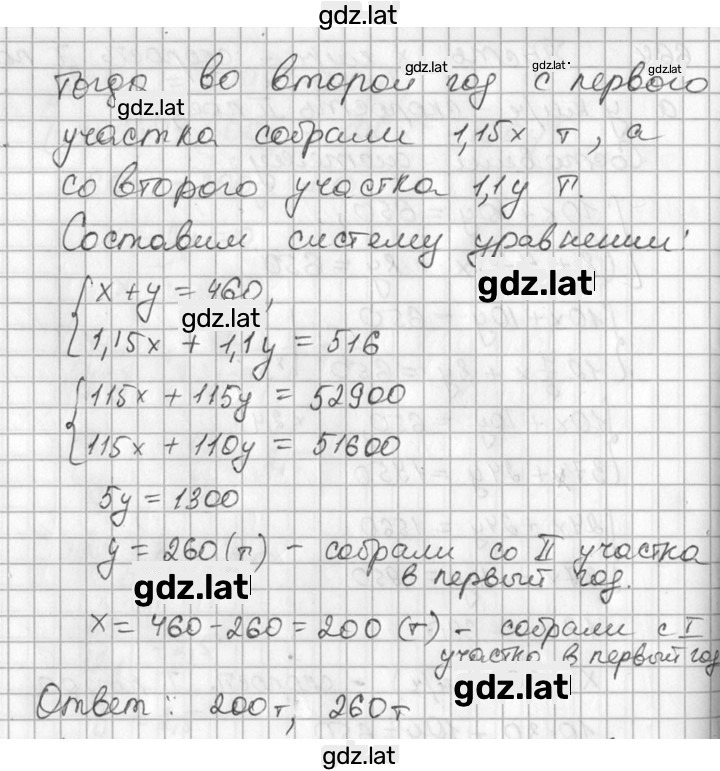 gdz.lat
Тогда во второй год с первого
gdz.lat gdz.lat gdz.lat
gdz.lat
участка собрали 1,15x т, а
со второго участка 1,1y т.
Составим систему уравнений:
gdz.lat
x + y = 460,
gdz.lat
1,15x + 1,1y = 516
115x + 115y = 52900
115x + 110y = 51600
5y = 1300
y = 260 (т) - собрали со II участка
в первый год.
gdz.lat
x = 460 - 260 = 200 (т) - собрали с I
участка в первый год
gdz.lat
Ответ: 200т, 260т
gdz.lat